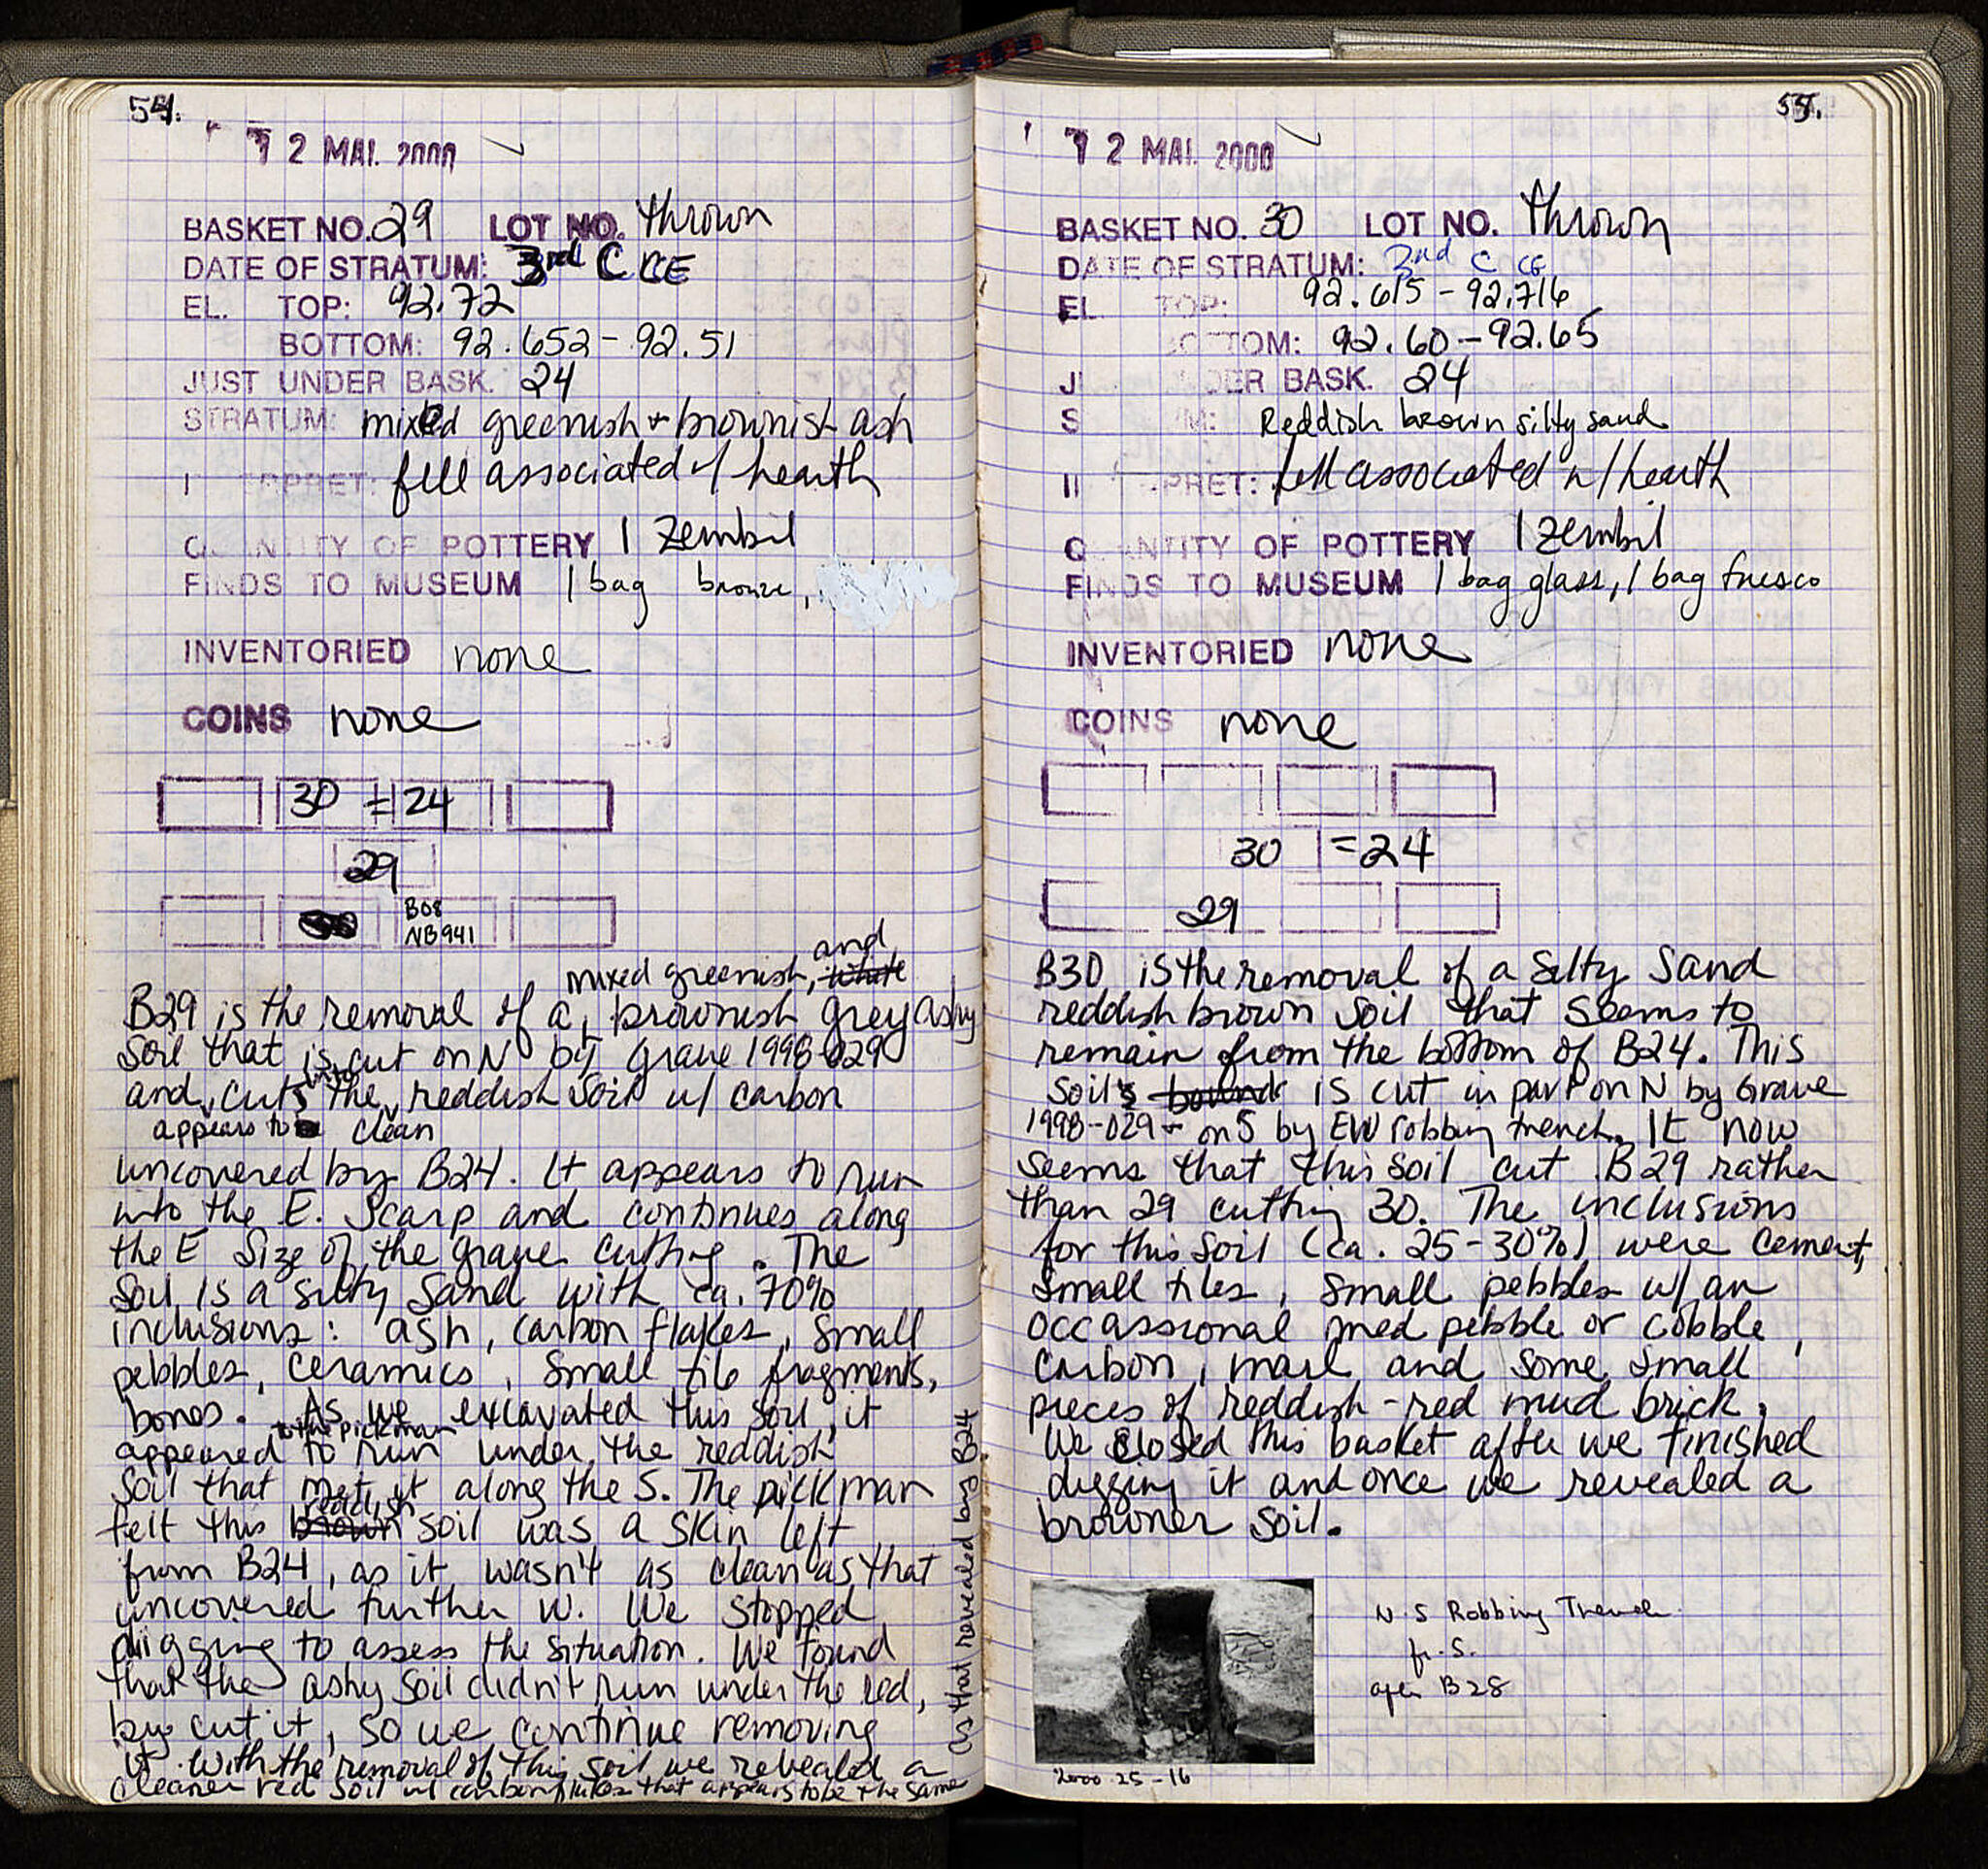 54.
12 MAI. 2000
BASKET NO. 29 LOT NO. thrown
DATE OF STRATUM: 3rd C CE
EL. TOP: 92.72
BOTTOM: 92.652 - 92.51
JUST UNDER BASK. 24
STRATUM: mixed greenish + brownish ash
INTERPRET: fill associated w/ hearth
QUANTITY OF POTTERY 1 Zembil
FINDS TO MUSEUM 1 bag bronze,
INVENTORIED none
COINS none
30 = 24
29
B08
NB941
and
mixed greenish, white
B29 is the removal of a brownish grey ashy
soil that is cut on N by grave 1998-029
into
and cuts the reddish soil w/ carbon
appears to clean
uncovered by B24. It appears to run
into the E. Scarp and continues along
the E Size of the grave cutting. The
soil is a silty sand with ca. 70%
inclusions: ash, carbon flakes, small
pebbles, ceramics, small tile fragments,
bones. As we excavated this soil, it
to the pickman
appeared to run under the reddish
soil that met it along the S. The pickman
reddish
felt this brown soil was a skin left
from B24, as it wasn't as clean as that
uncovered further W. We stopped
digging to assess the situation. We found
that the ashy soil didn't run under the red,
by cut it, so we continue removing
it. With the removal of this soil we revealed a
cleaner red soil w/ carbon flakes that appears to be the same
as that revealed by B24
55.
12 MAI. 2000
BASKET NO. 30 LOT NO. thrown
DATE OF STRATUM: 2nd C CE
EL. TOP: 92.615 - 92.716
BOTTOM: 92.60 - 92.65
JUST UNDER BASK. 24
STRATUM: Reddish brown silty sand
INTERPRET: fill associated w/ hearth
QUANTITY OF POTTERY 1 Zembil
FINDS TO MUSEUM 1 bag glass, 1 bag fresco
INVENTORIED none
COINS none
30 = 24
29
B30 is the removal of a silty sand
reddish brown soil that seems to
remain from the bottom of B24. This
soil is cut in part on N by Grave
1998-029 + on S by EW robbing trench. It now
seems that this soil cut B29 rather
than 29 cutting 30. The inclusions
for this soil (ca. 25-30%) were cement,
small tiles, small pebbles w/ an
occassional med pebble or cobble,
carbon, marl, and some small
pieces of reddish-red mud brick.
We closed this basket after we finished
digging it and once we revealed a
browner soil.
N-S Robbing Trench
fr. S.
after B28
2000-25-16